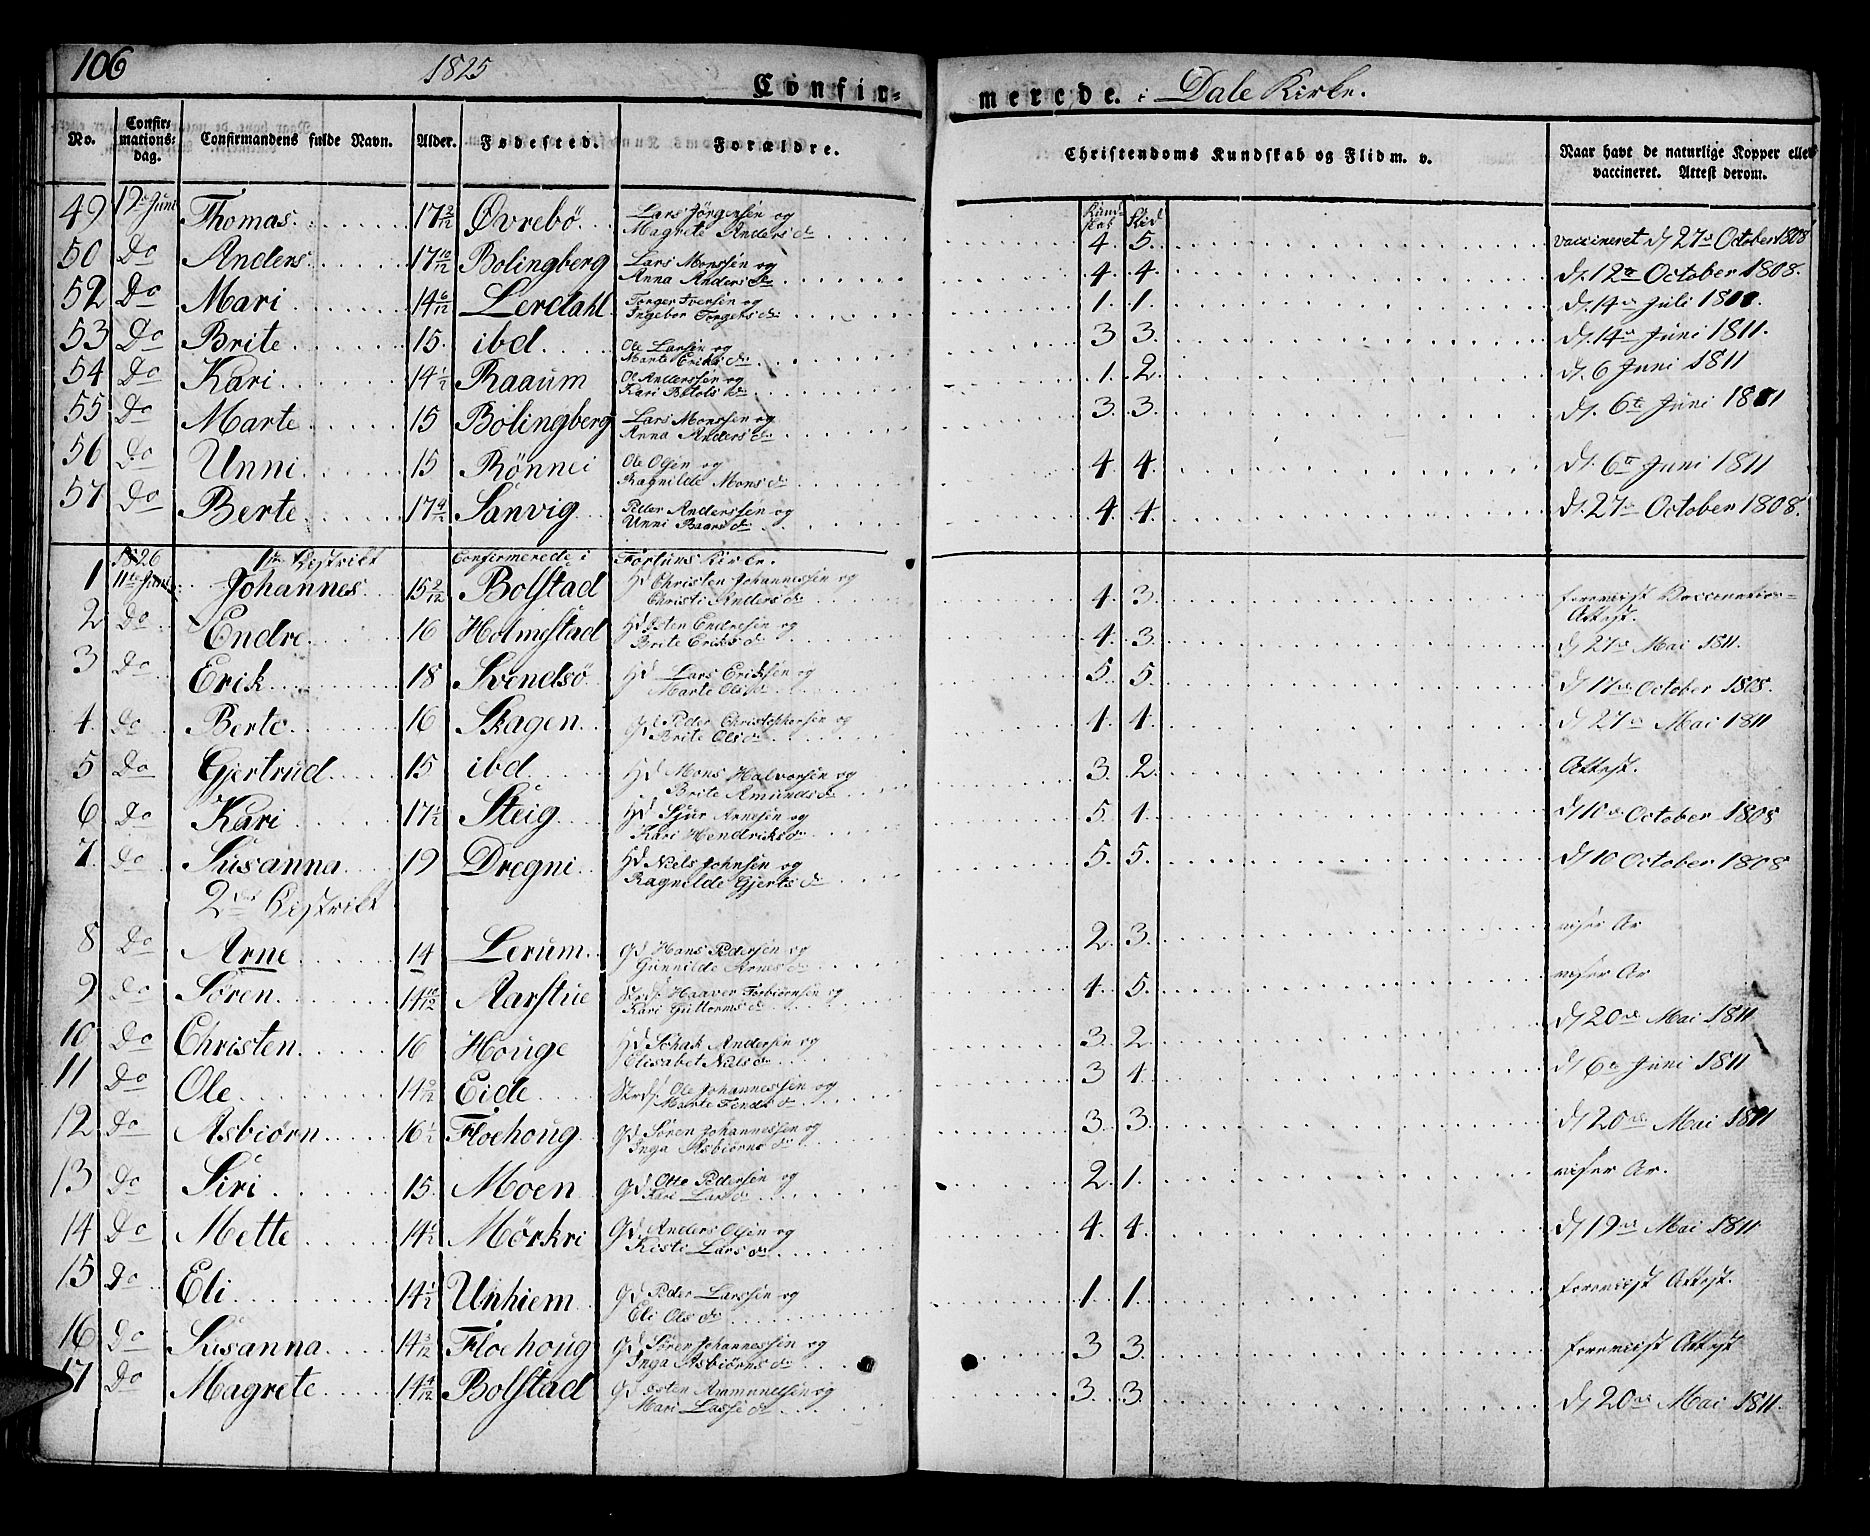 106 1825 Confir- merede. i Dale Kirke.
No. Confir-mations-dag. Confirmandens fulde Navn. Alder. Fødested. Forældre. Christendoms Kundskab og Flid m. v. Naar havt de naturlige Kopper eller vaccineret. Attest derom.
Kund-skab Flid
49 12te Juni Thomas 17 2/12 Øvrebö Lars Jörgensen og Magrete Anders d. 4. 5. vaccineret d. 27de October 1808
50 Do Anders 17 10/12 Bolingberg Lars Monssen og Anna Anders d. 4. 4. d. 12te October 1808.
52 Do Mari 14 6/12 Lerdahl Torger Iversen og Ingebor Torgers d. 1. 1. d. 14de Juli 1811.
53 Do Brite 15. ibd Ole Larsen og Marte Eriks d. 3 3. d. 14de Juni 1811.
54 Do Kari 14 1/2 Raaum Ol Anderssen og Kari Botols d. 1. 2. d. 6 Juni 1811
55 Do Marte 15 Bolingberg Lars Monssen og Anna Anders d. 3. 3. d. 6te Juni 1811
56 Do Unni 15 Rönnei Ole Olsen og Ragnilde Mons d. 4 4. d. 6te Juni 1811
57 Do Berte 17 4/12 Sanvig Peder Anderssen og Unni Baars d. 4. 4. d. 27de October 1808.
1826 1ste Distrikt Confirmerede i Fortuns Kirke.
1 11te Juni Johannes 15 2/12 Bolstad Hd Christen Johannessen og Christi Anders d. 4. 3. foreviist Vaccinations-Attest.
2 Do Endre 16 Holmestad Hd Osten Endresen og Brite Eriks d. 4. 3. d. 27de Mai 1811.
3 Do Erik 18 Svendsö Hd Lars Eriksen og Marte Ols d. 5 5. d. 17de October 1808.
4. Do Berte 16 Skagen Gd Peder Christophersen og Brite Ols d. 4. 4. d. 27de Mai 1811
5 Do Gjertrud 15 ibd Hd Mons Halvorsen og Brite Amunds d. 3. 2. Attest.
6 Do Kari 17 1/2 Steig Hd Sjur Arnesen og Kari Hendriks d. 5 4. d. 10de October 1808
7. Do Susanna 19 Dregni Hd Niels Johnsen og Ragnilde Gjerts d. 5. 5. d. 10 October 1808
2det Distrikt
8 Do Arne 14 Lerum Gd Hans Pedersen og Gunnilde Arnes d. 2 3. viser Ar
9 Do Sören 14 10/12 Aarstue Strdf. Haaver Torbiörnsen og Kari Guttorms d. 4. 5. viser Ar
10 Do Christen 16 Houge Hd Andersen og Elisabet Niels d. 3. 2. d. 20de Mai 1811
11 Do Ole 14 9/12 Eide Strdf. Ole Johannessen og Marte d. 3 4. d. 6te Juni 1811
12 Do Asbiörn 16 1/2 Floehoug Gd Sören Johannessen og Inga Asbiörns d. 3. 3. d. 20de Mai 1811
13 Do Siri 15. Moen Gd Otto Pedersen og Kari Lars d. 2 1. viser Ar.
14 Do Mette 14 1/2 Mörkri Gd Anders Olsen og Kisti Lars d. 4. 4. d. 19de Mai 1811
15 Do Eli 14 1/2 Unhiem Gd Peder Larssen og Eli Ols d. 1 1. foreviist Attest.
16 Do Susanna 14 3/12 Floehoug Gd Sören Johannessen og Inga Asbiörns d. 3 3. foreviist Attest
17 Do Magrete 14 4/12 Bolstad Gd Osten og Mari Lasse d. 3. 3. d. 20de Mai 1811.